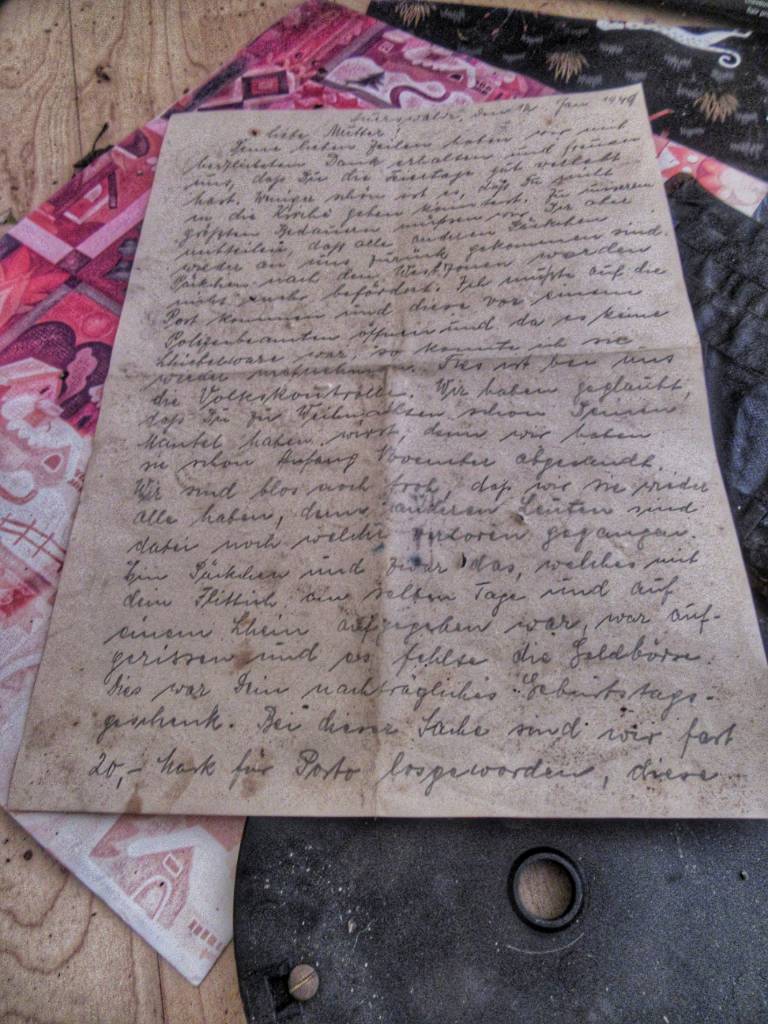 Auerswalde, den 12. Jan. 1949
Liebe Mutter!
Deine lieben Zeilen haben wir mit
herzlichstem Dank erhalten und freuen
uns, daß Du die Feiertage gut verlebt
hast. Weniger schön ist es, daß Du nicht
in die Kirche gehen konntest. Zu unserem
größten Bedauern müssen wir Dir aber
mitteilen, daß alle anderen Päckchen
wieder an uns zurück gekommen sind.
Päckchen nach den Westzonen werden
nicht mehr befördert. Ich mußte auf die
Post kommen und diese vor einem
Polizeibeamten öffnen und da es keine
Schieberware war, so konnte ich sie
wieder mitnehmen. Dies ist bei uns
die Volkskontrolle. Wir haben geglaubt,
daß Du zu Weihnachten schon Deinen
Mantel haben wirst, denn wir haben
sie schon Anfang November abgesandt.
Wir sind blos noch froh, daß wir sie wieder
alle haben, denn anderen Leuten sind
dabei noch welche verloren gegangen.
Ein Päckchen und zwar das, welches mit
dem Flittich am selben Tage und auf
einem Schein aufgegeben war, war auf-
gerissen und es fehlte die Geldbörse.
Dies war Dein nachträgliches Geburtstags-
geschenk. Bei dieser Sache sind wir fast
20,- Mark für Porto losgeworden, diese